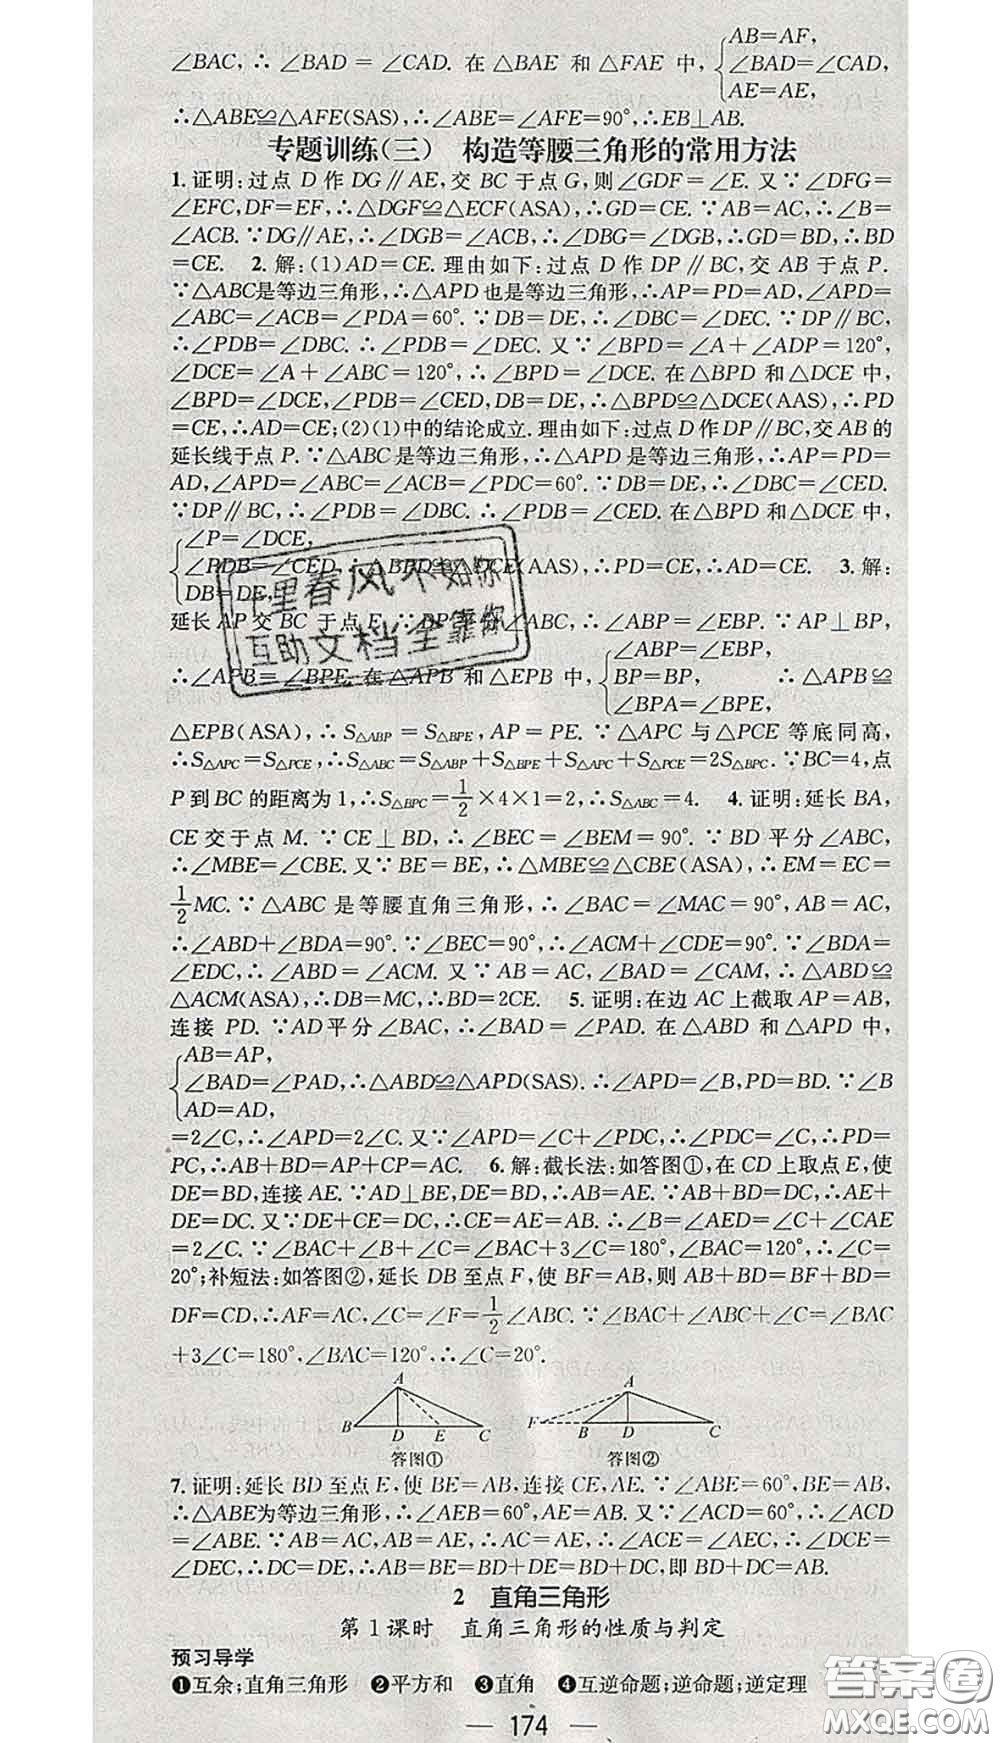 ∠BAC,∴∠BAD=∠CAD.在△BAE和△FAE中,{AB=AF,
∠BAD=∠CAD,
AE=AE,
∴△ABE≌△AFE(SAS),∴∠ABE=∠AFE=90°,∴EB⊥AB.
专题训练(三) 构造等腰三角形的常用方法
1.证明:过点D作DG∥AE,交BC于点G,则∠GDF=∠E.又∵∠DFG=
∠EFC,DF=EF,∴△DGF≌△ECF(ASA),∴GD=CE.∵AB=AC,∴∠B=
∠ACB.∵DG∥AE,∴∠DGB=∠ACB,∴∠DBG=∠DGB,∴GD=BD,∴BD
=CE. 2.解:(1)AD=CE.理由如下:过点D作DP∥BC,交AB于点P.
∵△ABC是等边三角形,∴△APD也是等边三角形,∴AP=PD=AD,∠APD=
∠ABC=∠ACB=∠PDA=60°.∵DB=DE,∴∠DBC=∠DEC.∵DP∥BC,
∴∠PDB=∠DBC.∴∠PDB=∠DEC.又∵∠BPD=∠A+∠ADP=120°,
∠DCE=∠A+∠ABC=120°,∴∠BPD=∠DCE.在△BPD和△DCE中,
∠BPD=∠DCE,∠PDB=∠CED,DB=DE,∴△BPD≌△DCE(AAS),∴PD
=CE,∴AD=CE;(2)(1)中的结论成立.理由如下:过点D作DP∥BC,交AB的
延长线于点P.∵△ABC是等边三角形,∴△APD是等边三角形,∴AP=PD=
AD,∠APD=∠ABC=∠ACB=∠PDC=60°.∵DB=DE,∴∠DBC=∠CED.
∵DP∥BC,∴∠PDB=∠DBC.∴∠PDB=∠CED.在△BPD和△DCE中,
{∠P=∠DCE,
∠PDB=∠CED,∴△BPD≌△DCE(AAS),∴PD=CE,∴AD=CE. 3.解:
DB=DE,
延长AP交BC于点E.∵BP平分∠ABC,∴∠ABP=∠EBP.∵AP⊥BP,
∴∠APB=∠BPE.在△APB和△EPB中,{∠ABP=∠EBP,
BP=BP, ∴△APB≌
∠BPA=∠BPE,
△EPB(ASA),∴S△ABP=S△BPE,AP=PE.∵△APC与△PCE等底同高,
∴S△APC=S△PCE,∴S△ABC=S△ABP+S△BPE+S△APC+S△PCE=2S△BPC.∵BC=4,点
P到BC的距离为1,∴S△BPC=1/2×4×1=2,∴S△ABC=4. 4.证明:延长BA,
CE交于点M.∵CE⊥BD,∴∠BEC=∠BEM=90°.∵BD平分∠ABC,
∴∠MBE=∠CBE.又∵BE=BE,∴△MBE≌△CBE(ASA),∴EM=EC=
1/2MC.∵△ABC是等腰直角三角形,∴∠BAC=∠MAC=90°,AB=AC,
∴∠ABD+∠BDA=90°.∵∠BEC=90°,∴∠ACM+∠CDE=90°.∵∠BDA=
∠EDC,∴∠ABD=∠ACM.又∵AB=AC,∠BAD=∠CAM,∴△ABD≌
△ACM(ASA),∴DB=MC,∴BD=2CE. 5.证明:在边AC上截取AP=AB,
连接PD.∵AD平分∠BAC,∴∠BAD=∠PAD.在△ABD和△APD中,
{AB=AP,
∠BAD=∠PAD,∴△ABD≌△APD(SAS).∴∠APD=∠B,PD=BD.∵∠B
AD=AD,
=2∠C,∴∠APD=2∠C.又∵∠APD=∠C+∠PDC,∴∠PDC=∠C.∴PD=
PC,∴AB+BD=AP+CP=AC. 6.解:截长法:如答图①,在CD上取点E,使
DE=BD,连接AE.∵AD⊥BE,DE=BD,∴AB=AE.∵AB+BD=DC,∴AE+
DE=DC.又∵DE+CE=DC,∴CE=AE=AB.∴∠B=∠AED=∠C+∠CAE
=2∠C.∵∠BAC+∠B+∠C=∠BAC+3∠C=180°,∠BAC=120°,∴∠C=
20°;补短法:如答图②,延长DB至点F,使BF=AB,则AB+BD=BF+BD=
DF=CD,∴AF=AC,∠C=∠F=1/2∠ABC.∵∠BAC+∠ABC+∠C=∠BAC
+3∠C=180°,∠BAC=120°,∴∠C=20°.
A
B D E C
答图①
A
F B D C
答图②
7.证明:延长BD至点E,使BE=AB,连接CE,AE.∵∠ABE=60°,BE=AB,
∴△ABE为等边三角形,∴∠AEB=60°,AE=AB.又∵∠ACD=60°,∴∠ACD
=∠ABE.∵AB=AC,AB=AE,∴AC=AE,∴∠ACE=∠AEC,∴∠DCE=
∠DEC,∴DC=DE,∴AB=BE=BD+DE=BD+DC,即BD+DC=AB.
2 直角三角形
第1课时 直角三角形的性质与判定
预习导学
❶互余;直角三角形 ❷平方和 ❸直角 ❹互逆命题;逆命题;逆定理
174
千里春风不如你
互助文档全靠你
答案圈
MXQE.COM